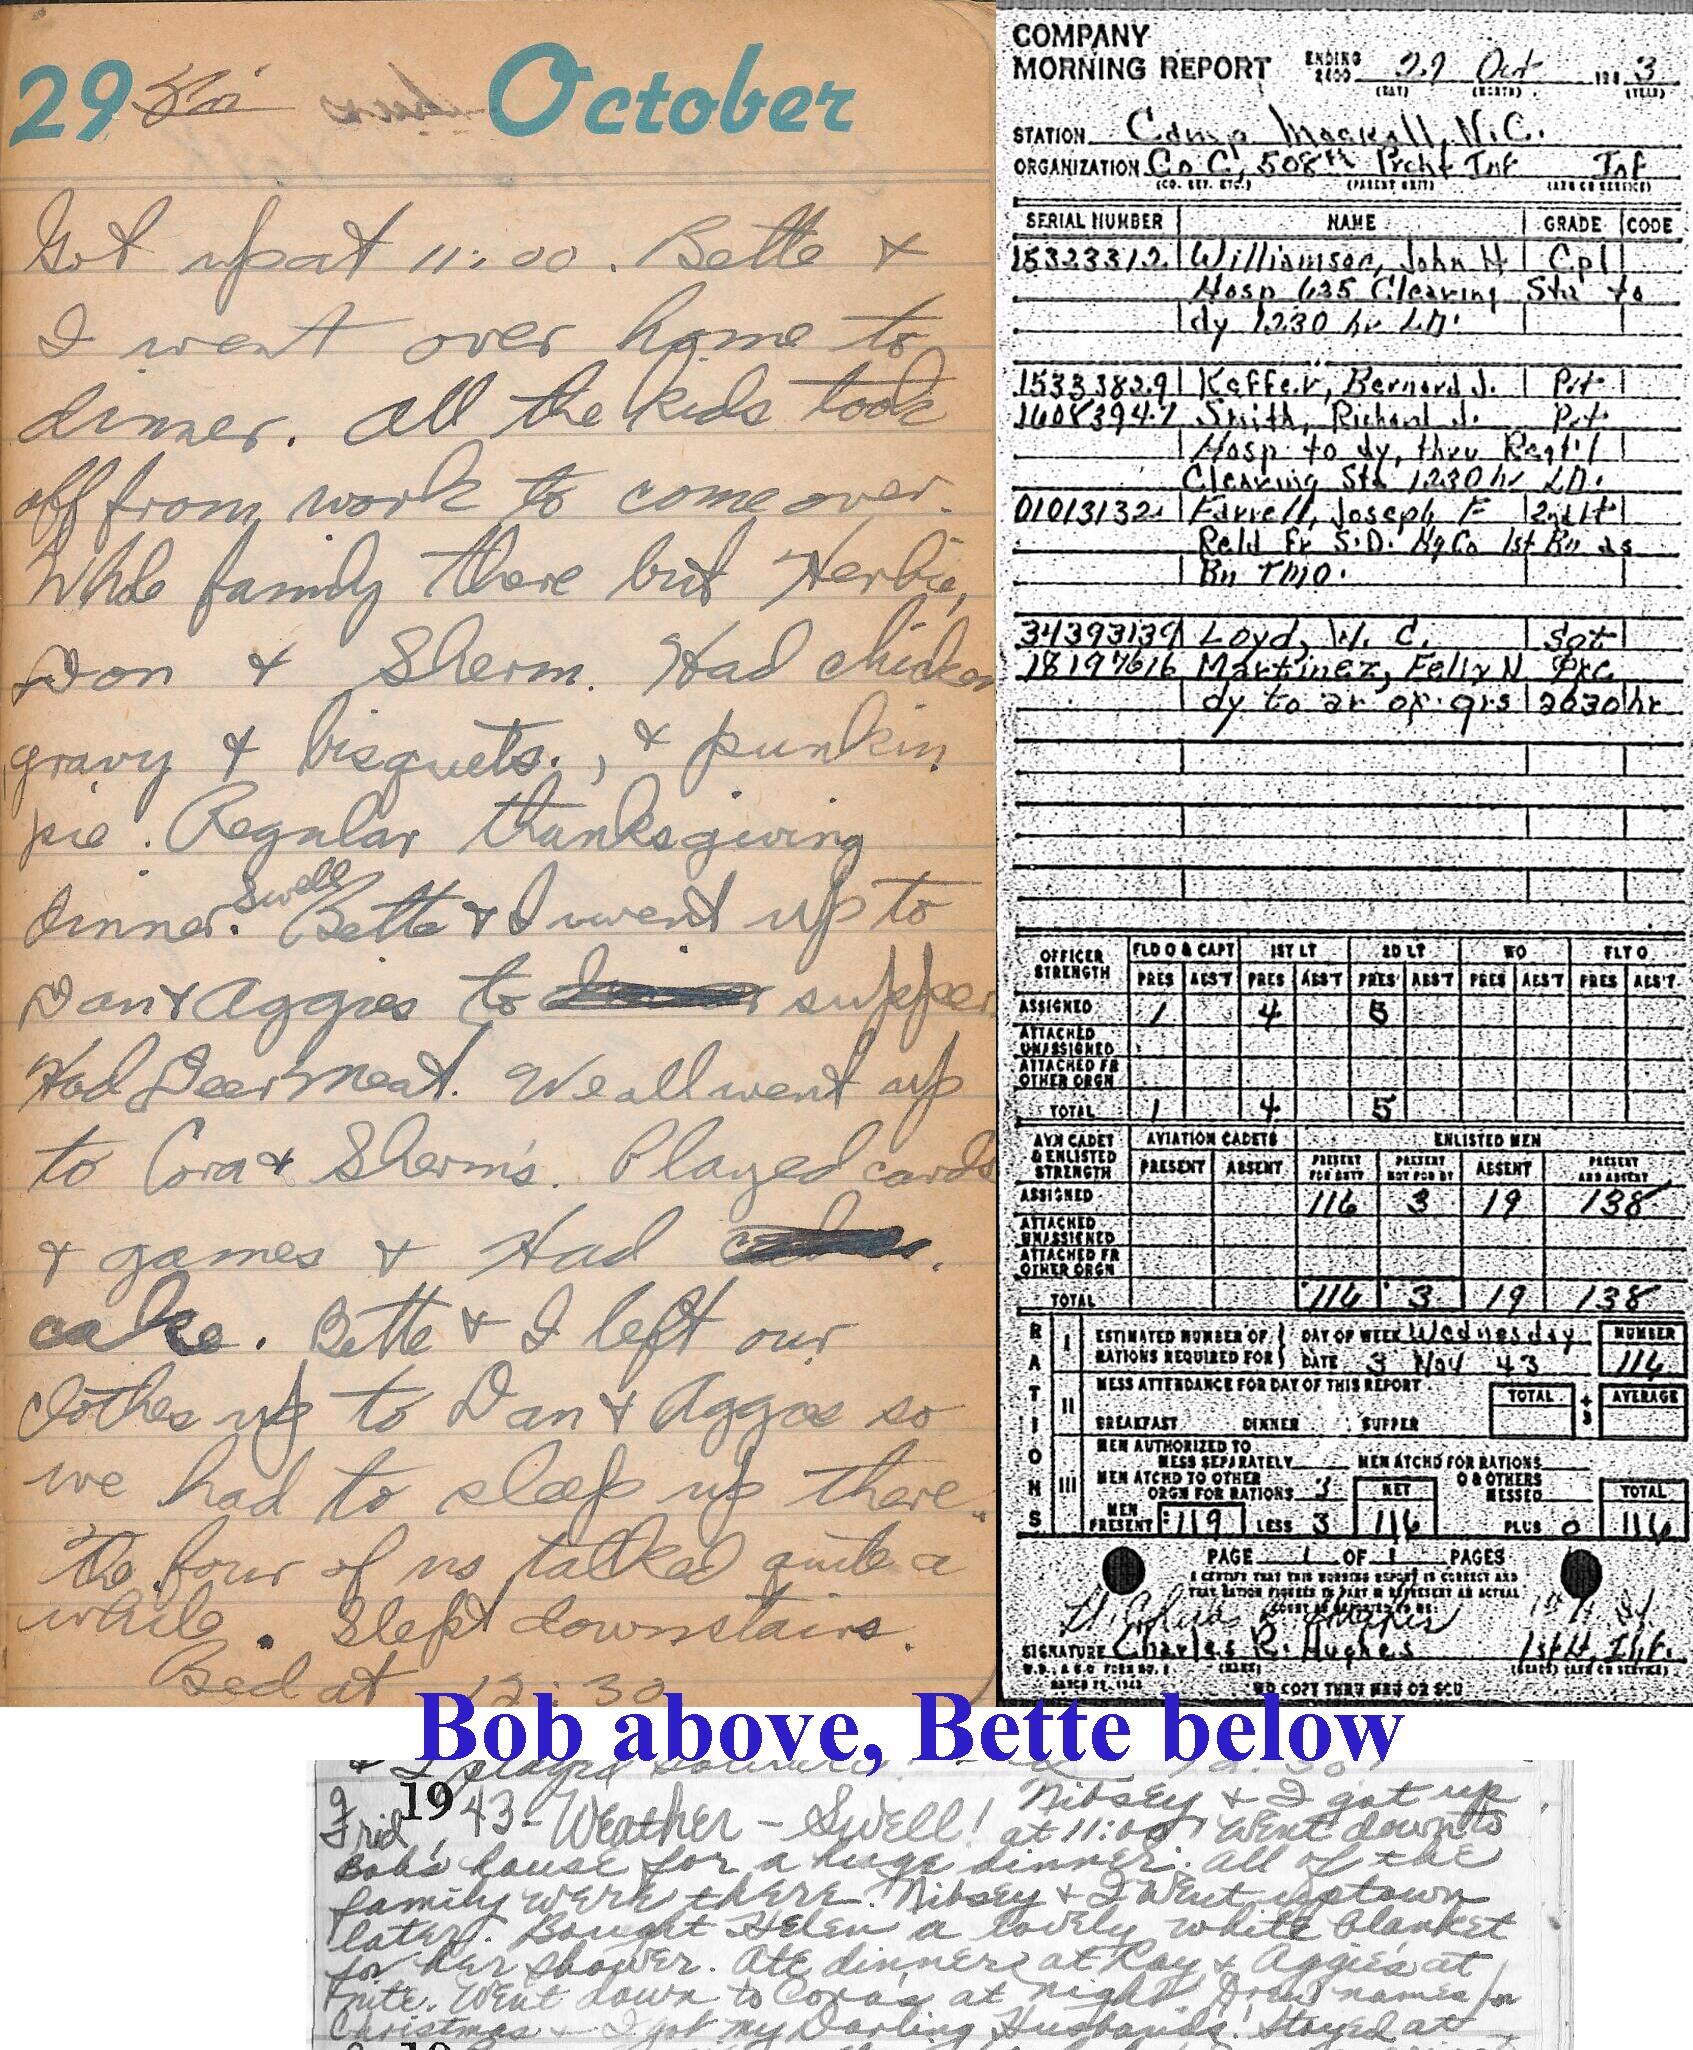 29 Fri October
Got up at 11:00. Bette &
I went over home to
dinner. All the kids took
off from work to come over.
Whole family there but Herbie,
Don & Sherm. Had chicken
gravy & bisquets., & punkin
pie. Regular thanksgiving
dinner. Swell Bette & I went up to
Dan & Aggies to supper
Had Deer Meat. We all went up
to Cora & Sherm's. Played cards
& games & Had
cake. Bette & I left our
clothes up to Dan & Aggas so
we had to sleep up there.
The four of us talked quite a
while. Slept downstairs.
Bed at 12:30
COMPANY
MORNING REPORT ENDING 2400 29 Oct 194 3
(DAY) (MONTH) (YEAR)
STATION Camp Mackall, N.C.
ORGANIZATION Co C, 508th Prcht Inf Inf
(CO. DET. ETC.) (PARENT UNIT) (ARM OR SERVICE)
SERIAL NUMBER NAME GRADE CODE
15323312 Williamson, John H Cpl
Hosp 635 Clearing Sta to
dy 1230 hr LD.
15333829 Keffer, Bernard J. Pvt
16083947 Smith, Richard J. Pvt
Hosp to dy, thru Regt'l
Clearing Sta 1230 hr LD.
01013132 Farrell, Joseph F 2nd Lt
Reld fr S.D. Hq Co 1st Bn as
Bn TMO.
34393139 Loyd, W. C. Sgt
18197616 Martinez, Felix N Pfc
dy to ar qrs 2030 hr
OFFICER STRENGTH FLD O & CAPT 1ST LT 2D LT WO FLT O
PRES ABS'T PRES ABS'T PRES ABS'T PRES ABS'T PRES ABS'T
ASSIGNED 1 4 5
ATTACHED UNASSIGNED
ATTACHED FR OTHER ORGN
TOTAL 1 4 5
AVN CADET & ENLISTED STRENGTH AVIATION CADETS ENLISTED MEN
PRESENT ABSENT PRESENT FOR DUTY PRESENT NOT FOR DY ABSENT PRESENT AND ABSENT
ASSIGNED 116 3 19 138
ATTACHED UNASSIGNED
ATTACHED FR OTHER ORGN
TOTAL 116 3 19 138
RATIONS
I ESTIMATED NUMBER OF RATIONS REQUIRED FOR DAY OF WEEK Wednesday DATE 3 Nov 43 NUMBER 116
II MESS ATTENDANCE FOR DAY OF THIS REPORT TOTAL ÷ 3 AVERAGE
BREAKFAST DINNER SUPPER
III MEN AUTHORIZED TO MESS SEPARATELY MEN ATCHD FOR RATIONS
MEN ATCHD TO OTHER ORGN FOR RATIONS 3 NET O & OTHERS MESSED TOTAL
MEN PRESENT 119 LESS 3 116 PLUS 0 116
PAGE 1 OF 1 PAGES
I CERTIFY THAT THIS MORNING REPORT IS CORRECT AND
THAT RATION FIGURES IN PART III REPRESENT AN ACTUAL
COUNT AS REPORTED TO ME:
SIGNATURE Charles R. Hughes 1st Lt, Inf.
W.D., A.G.O. FORM NO. 1 (NAME) (GRADE) (ARM OR SERVICE)
MARCH 19, 1943 WD COPY THRU MRU OR SCU
Bob above, Bette below
& I played
Frid. 1943 - Weather - Swell! Nibsey & I got up
at 11:00. Went down to
Bob's house for a huge dinner. All of the
family were there. Nibsey & I went uptown
later. Bought Helen a lovely white blanket
for her shower. Ate dinner at Ray & Aggie's at
nite. Went down to Cora's at night. Drew names for
Christmas - I got my Darling Husbands! Stayed at
19